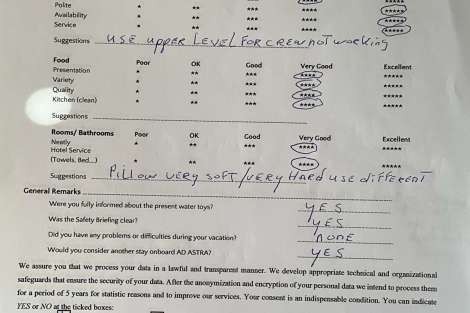 Polite * ** *** **** *****
Availability * ** *** **** *****
Service * ** *** **** *****
Suggestions USE UPPER LEVEL FOR CREW NOT WORKING
Food Poor OK Good Very Good Excellent
Presentation * ** *** **** *****
Variety * ** *** **** *****
Quality * ** *** **** *****
Kitchen (clean) * ** *** **** *****
Suggestions
Rooms/ Bathrooms Poor OK Good Very Good Excellent
Neatly * ** *** **** *****
Hotel Service
(Towels, Bed...) * ** *** **** *****
Suggestions PILLOW VERY SOFT / VERY HARD USE DIFFERENT
General Remarks
Were you fully informed about the present water toys? YES
Was the Safety Briefing clear? YES
Did you have any problems or difficulties during your vacation? NONE
Would you consider another stay onboard AD ASTRA? YES
We assure you that we process your data in a lawful and transparent manner. We develop appropriate technical and organizational
safeguards that ensure the security of your data. After the anonymization and encryption of your personal data we intend to process them
for a period of 5 years for statistic reasons and to improve our services. Your consent is an indispensable condition. You can indicate
YES or NO at the ticked boxes: